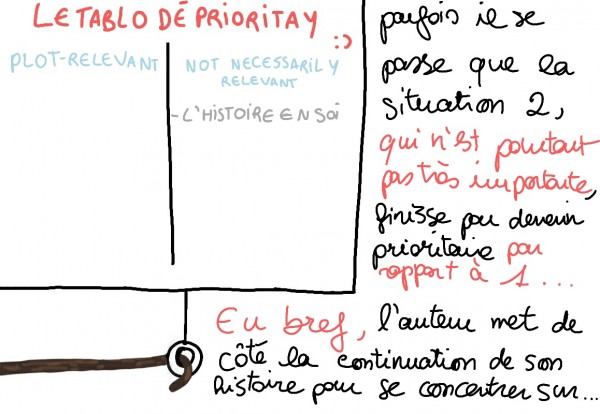 LE TABLO DÉ PRIORITAY
:)
PLOT-RELEVANT
NOT NECESSARILY
RELEVANT
- L'HISTOIRE EN SOI
parfois il se
passe que la
situation 2,
qui n'est pourtant
pas très importante,
finisse par devenir
prioritaire par
rapport à 1...
En bref, l'auteur met de
côté la continuation de son
histoire pour se concentrer sur...